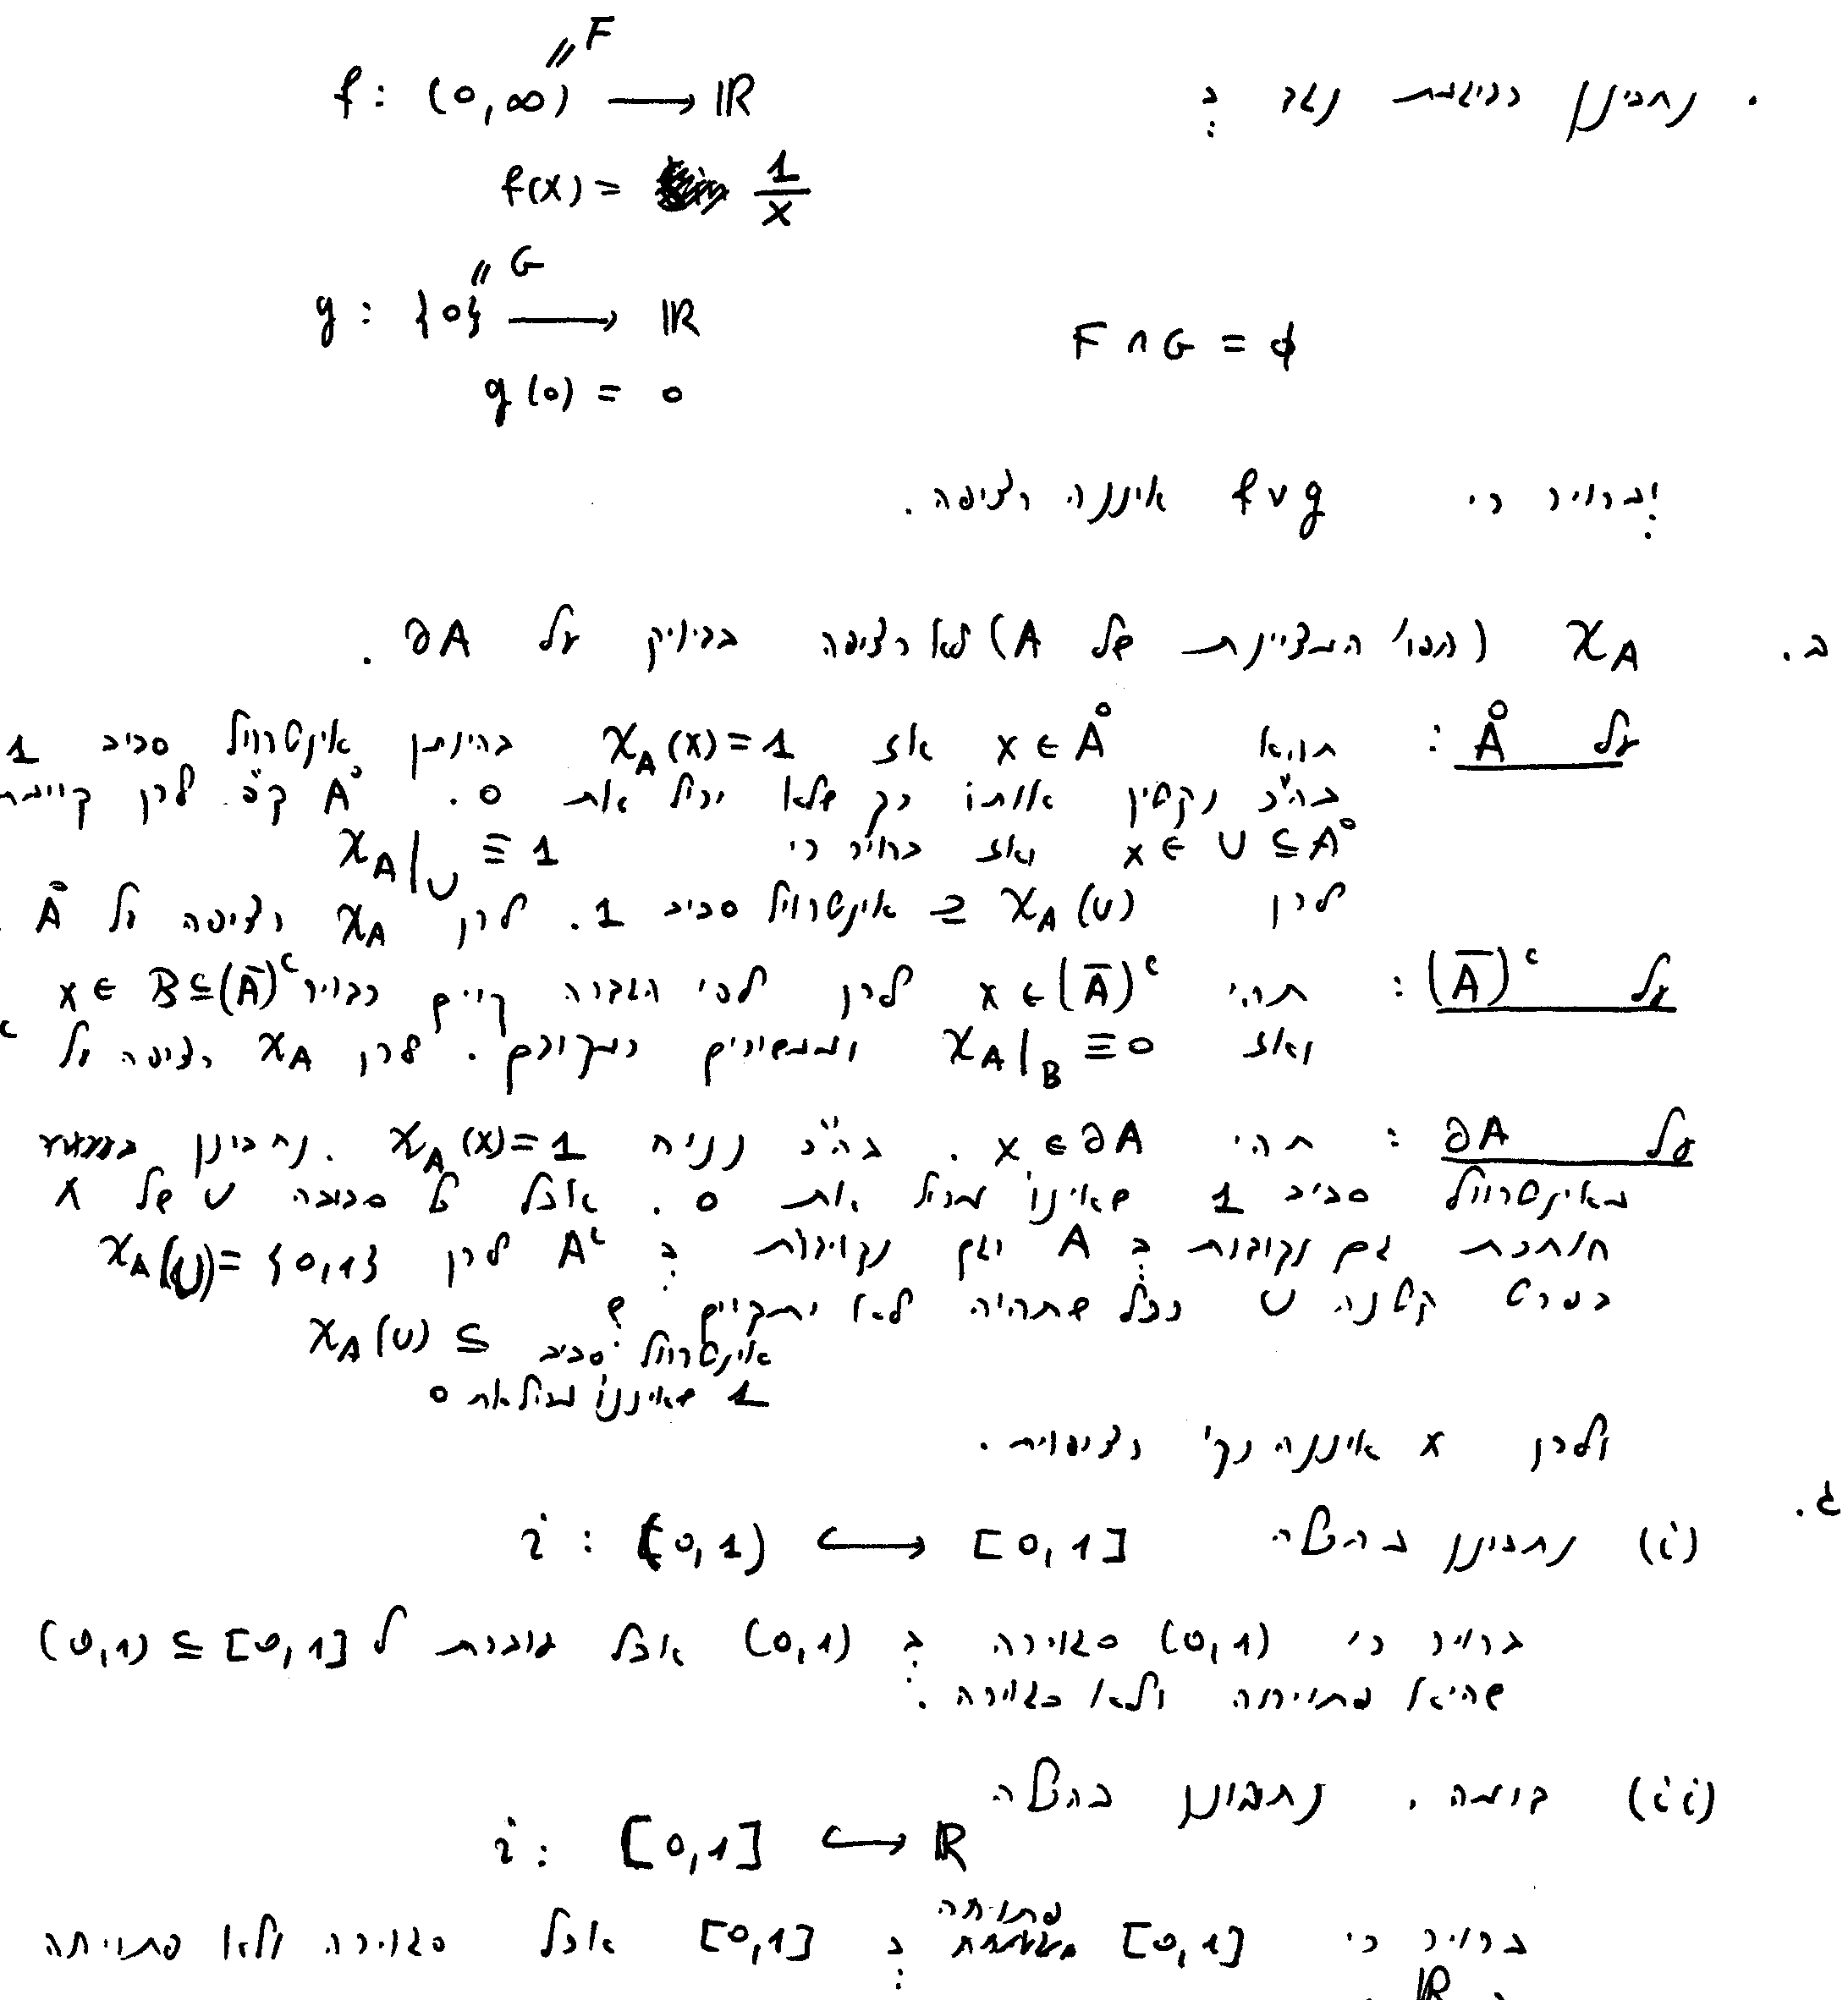 . נתבונן כדוגמת נגד ב: f : (0,∞) ⟶ ℝ
// F
f(x) = 1/x
// G
g : {0} ⟶ ℝ
F ∩ G = φ
g(0) = 0
וברור כי f∨g איננה רציפה.
ב. χ_A (הפו' המציינת של A) לא רציפה בדיוק על ∂A.
על Å : תהא x ∈ Å אז χ_A(x)=1 בהינתן אינטרוול סביב 1
בה"כ נקטין אותו כך שלא יכיל את 0. Å קב' לכן קיימת
x ∈ U ⊆ Å ואז ברור כי χ_A|_U ≡ 1
לכן χ_A(U) ⊆ אינטרוול סביב 1. לכן χ_A רציפה על Å.
על (Ā)^c : תהי x ∈ (Ā)^c לכן לפי הגדרה קיים כדור x ∈ B ⊆ (Ā)^c
ואז χ_A|_B ≡ 0 וממשיכים כמקודם. לכן χ_A רציפה על c
על ∂A : תהי x ∈ ∂A. בה"כ נניח χ_A(x)=1. נתבונן
באינטרוול סביב 1 שאינו מכיל את 0. אבל כל סביבה U של x
חותכת גם נקודות ב A וגם נקודות ב A^c לכן χ_A(U) = {0,1}
בפרט קטנה U ככל שתהיה לא יתקיים ש
χ_A(U) ⊆ אינטרוול סביב
1 שאיננו מכיל את 0
ולכן x איננה נק' רציפות.
ג.
(i) נתבונן בהטלה i : (0,1) ↪ [0,1]
ברור כי (0,1) סגורה ב (0,1) אבל עוברת ל (0,1) ⊆ [0,1]
שהיא פתוחה ולא סגורה.
(ii) דומה, נתבונן בהטלה
i : [0,1] ↪ ℝ
פתוחה
ברור כי [0,1] ב [0,1] אבל סגורה ולא פתוחה
ב ℝ.